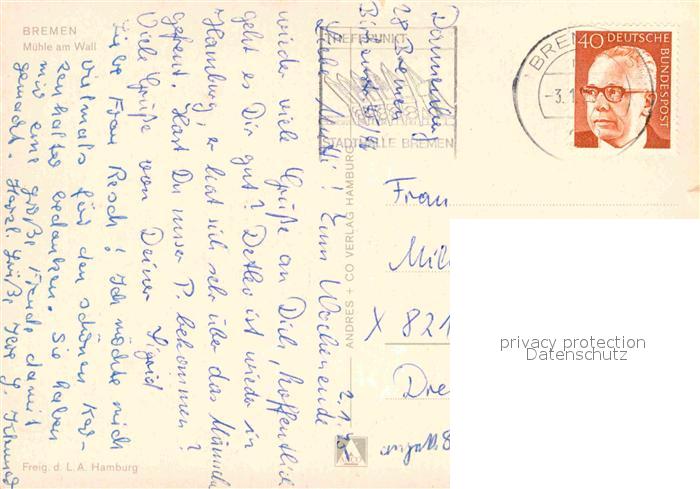 BREMEN
Mühle am Wall
Donnerstag
28 Bremen
TREFFPUNKT
STADTHALLE BREMEN
BREMEN
-3.1.
40 DEUTSCHE
BUNDESPOST
Liebe Mutti! Zum Wochenende
wieder viele Grüße an Dich, hoffentlich
geht es Dir gut? Detlev ist wieder in
Hamburg, er hat sich sehr über das Männchen
gefreut. Hast Du unser P. bekommen?
Viele Grüße von Deiner Sigrid
Liebe Frau Resch! Ich möchte mich
vielmals für den schönen Kas-
tenhalter bedanken. Sie haben
mir eine große Freude damit
gemacht. Herzl. Grüße
2.1.
ANDRES + CO VERLAG HAMBURG
Frau
X 821
Dre
privacy protection
Datenschutz
Freig. d. L.A. Hamburg